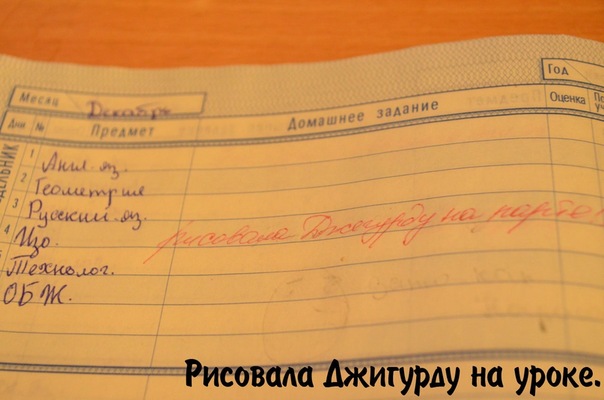 Год
Месяц Декабрь
Дни № Предмет Домашнее задание Оценка
1 Англ. яз.
2 Геометрия
3 Русский яз.
4 Изо.
Технолог.
ОБЖ.
рисовала Джигурду на парте!
Рисовала Джигурду на уроке.